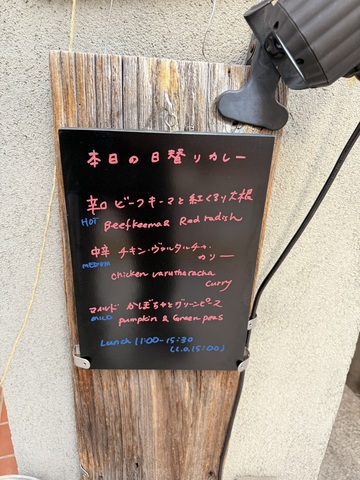 本日の日替りカレー
辛口 ビーフキーマと紅くるり大根
HOT Beefkeema & Red radish
中辛 チキン・ヴァルタルチャ・
カリー
MEDIUM chicken varutharacha
curry
マイルド かぼちゃとグリーンピース
MILD pumpkin & Green peas
Lunch 11:00-15:30
(L.o 15:00)